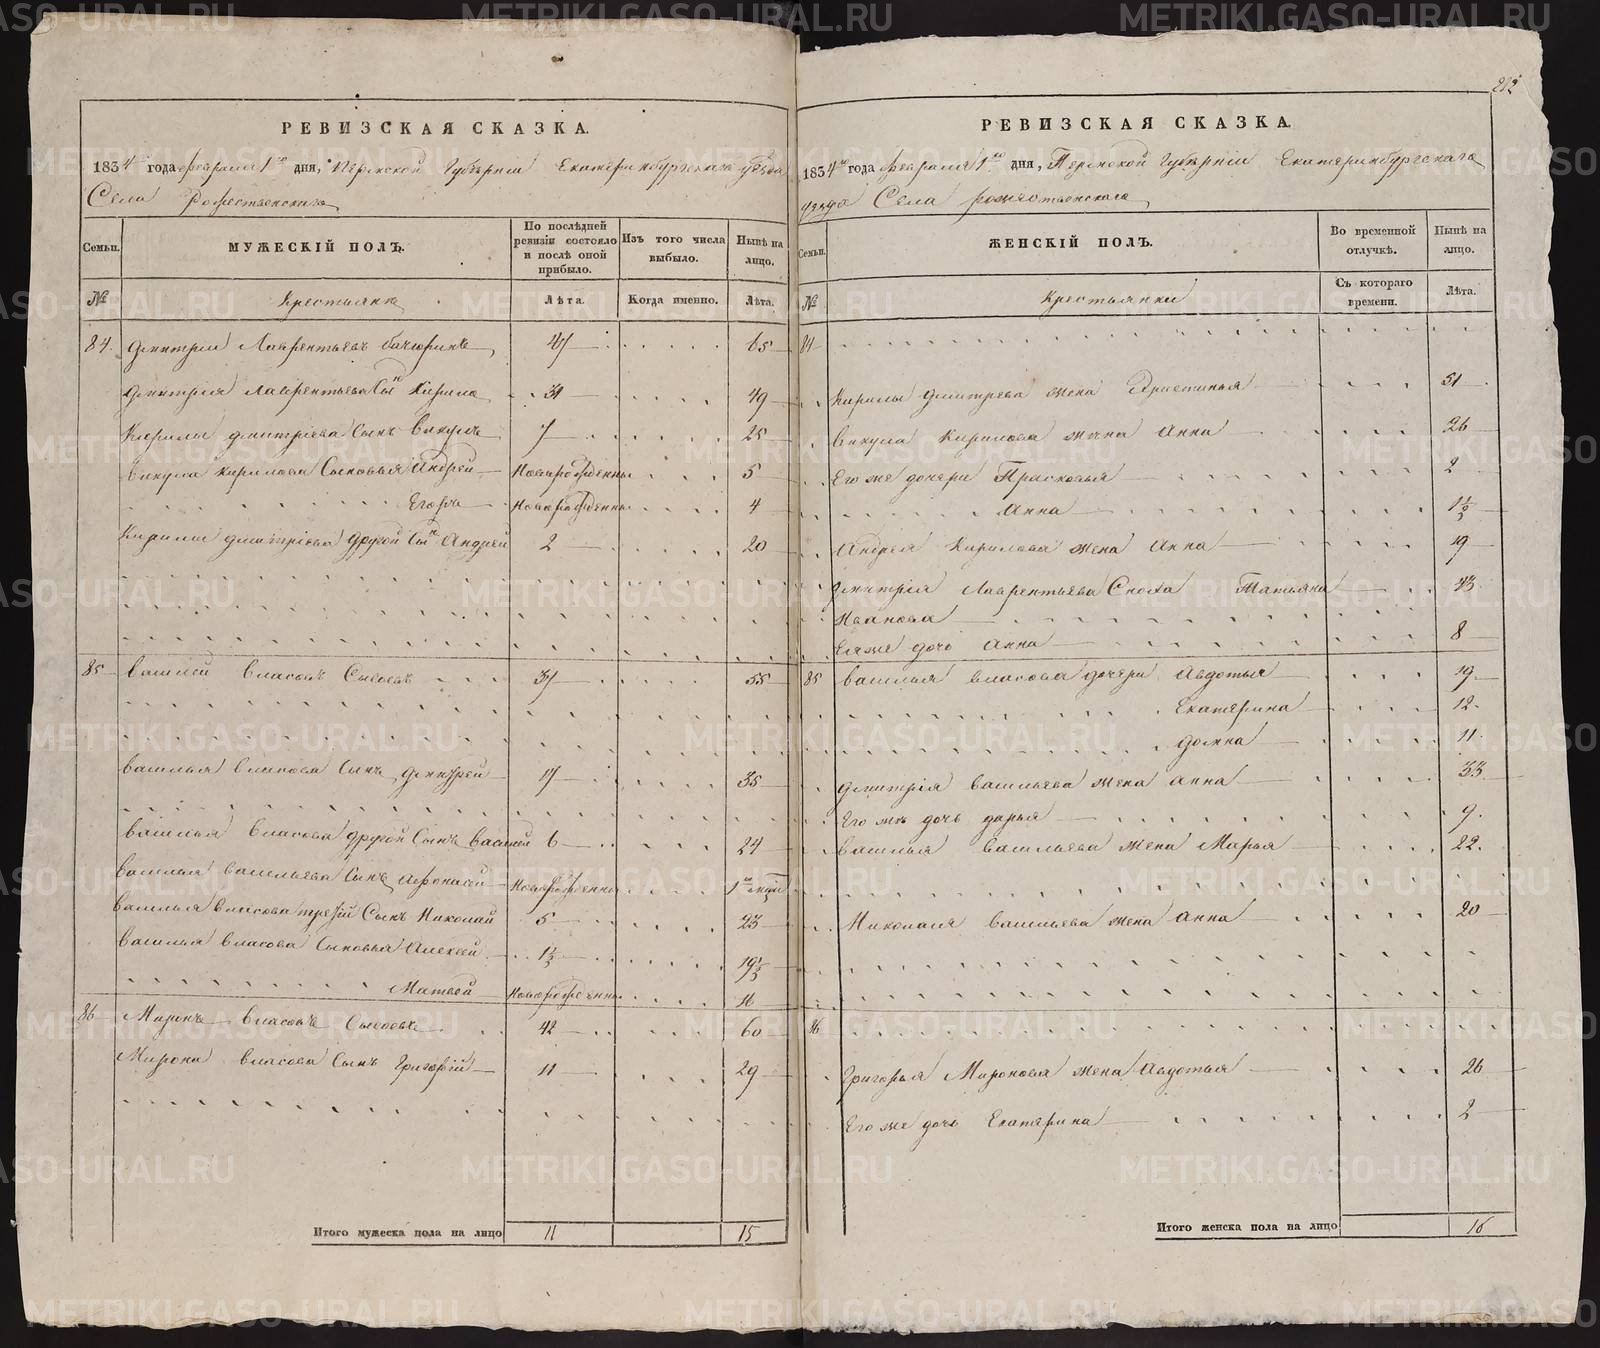 212
РЕВИЗСКАЯ СКАЗКА.
1834го года февраля 1го дня, Пермской Губернiи Екатеринбургскаго уезда
Села Рожественскаго
Семьи.
МУЖЕСКIЙ ПОЛЪ.
По послѣдней ревизiи состояло и послѣ оной прибыло.
Изъ того числа выбыло.
Нынѣ на лицо.
№
Крестьяне
Лѣта.
Когда именно.
Лѣта.
84. Дмитрiи Лаврентьевъ 47 65
Дмитрiя Лаврентьева Сынъ Кирила 31 49
Кирилы Дмитрiева Сынъ Викулъ 7 25
Викула Кирилова Сыновья Андрей Новорожденны 5
Егоръ Новорожденны 4
Кирилы Дмитрiева другой Сынъ Андрей 2 20
85 Василей Власовъ Сысоевъ 37 55
Василья Власова Сынъ Дмитрей 17 35
Василья Власова другой Сынъ Василей 6 24
Василья Васильева Сынъ Афонасей Новорожденны
Василья Власова третiй Сынъ Николай 5 23
Василья Власова Сыновья Алексей 1½ 19½
Матвей Новорожденны 16
86 Миронъ Власовъ Сысоевъ 42 60
Мирона Власова Сынъ Григорiй 11 29
Итого мужеска пола на лицо 11 15
РЕВИЗСКАЯ СКАЗКА.
1834го года февраля 1го дня, Пермской Губернiи Екатеринбургскаго
уезда Села рожественскаго
Семьи.
ЖЕНСКIЙ ПОЛЪ.
Во временной отлучкѣ.
Нынѣ на лицо.
№
Крестьянки
Съ котораго времени.
Лѣта.
84
Кирилы Дмитрева жена Христинья 51
Викула Кирилова жена Анна 26
Его же дочери Прасковья 2
Анна 1½
Андрея Кирилова жена Анна 19
Дмитрiя Лаврентьева Сноха Татьяна 43
Иванова
Ея же дочь Анна 8
85 Василья Власова дочери Авдотья 19
Екатерина 12
Домна 11
Дмитрiя Васильева жена Анна 33
Его же дочь Дарья 9
Василья Васильева жена Марья 22
Николая Васильева жена Анна 20
86
Григорья Миронова жена Авдотья 26
Его же дочь Екатерина 2
Итого женска пола на лицо 16
METRIKI.GASO-URAL.RU